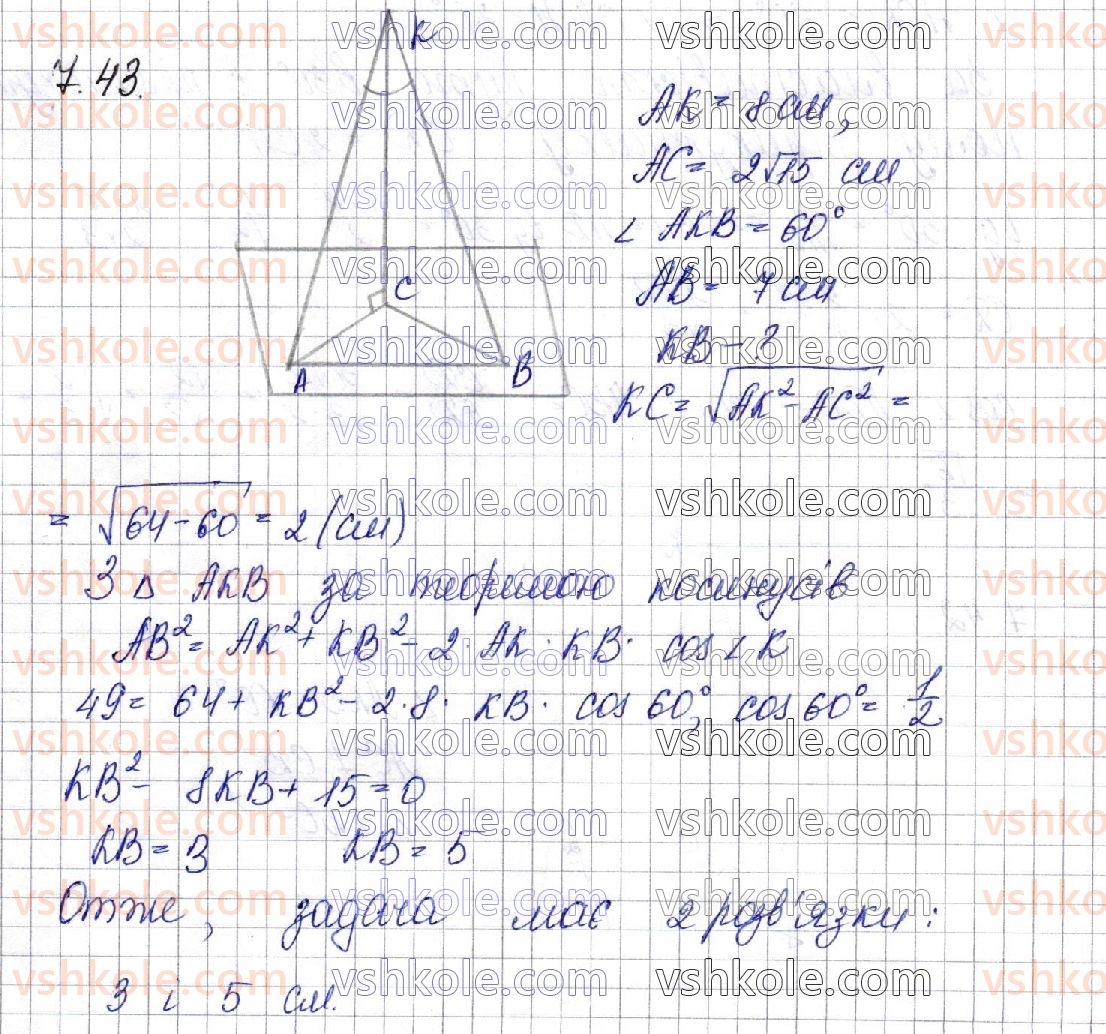 7.43.
K
C
A
B
AK = 8 см,
AC = 2√15 см
∠ AKB = 60°
AB = 7 см
KB - ?
KC = √AK² - AC² =
= √64 - 60 = 2 (см)
З Δ AKB за теоремою косинусів
AB² = AK² + KB² - 2 · AK · KB · cos ∠ K
49 = 64 + KB² - 2 · 8 · KB · cos 60°, cos 60° = 1/2
KB² - 8KB + 15 = 0
KB = 3 KB = 5
Отже, задача має 2 розв'язки:
3 і 5 см.
vshkole.com